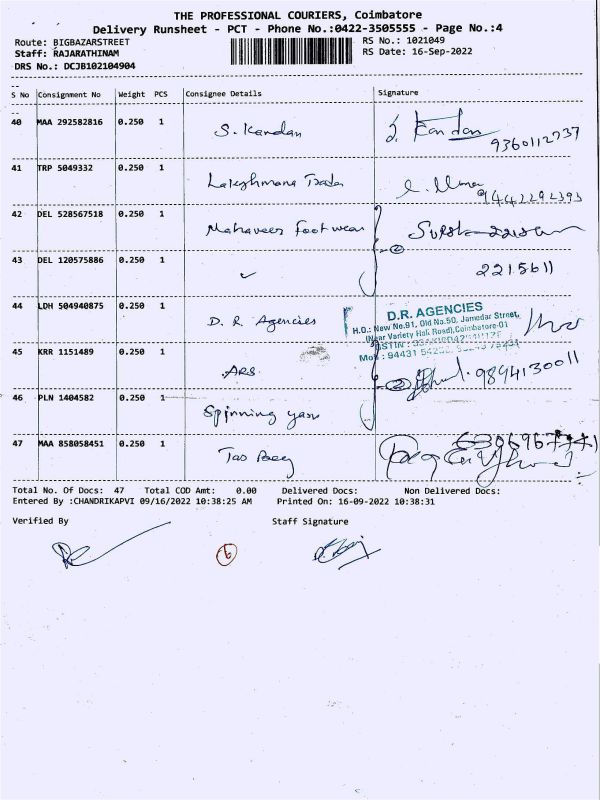 THE PROFESSIONAL COURIERS, Coimbatore
Delivery Runsheet - PCT - Phone No.:0422-3505555 - Page No.:4
Route: BIGBAZARSTREET
RS No.: 1021049
Staff: RAJARATHINAM
RS Date: 16-Sep-2022
DRS No.: DCJB102104904
S No Consignment No Weight PCS Consignee Details Signature
40 MAA 292582816 0.250 1 S. Kandan S. Kandan
9360112737
41 TRP 5049332 0.250 1 Lakshmana
9442292393
42 DEL 528567518 0.250 1 Mahaveer Footwear
43 DEL 120575886 0.250 1 2215611
44 LDH 504940875 0.250 1 D. R. Agencies
D.R. AGENCIES
H.O.: New No.91, Old No.50, Jamedar Street,
(Near Variety Hall Road), Coimbatore-01
GSTIN :
Mob : 94431
45 KRR 1151489 0.250 1 ARS. 9894130011
46 PLN 1404582 0.250 1 Spinning yarn
47 MAA 858058451 0.250 1
Total No. Of Docs: 47 Total COD Amt: 0.00 Delivered Docs: Non Delivered Docs:
Entered By :CHANDRIKAPVI 09/16/2022 10:38:25 AM Printed On: 16-09-2022 10:38:31
Verified By Staff Signature
6